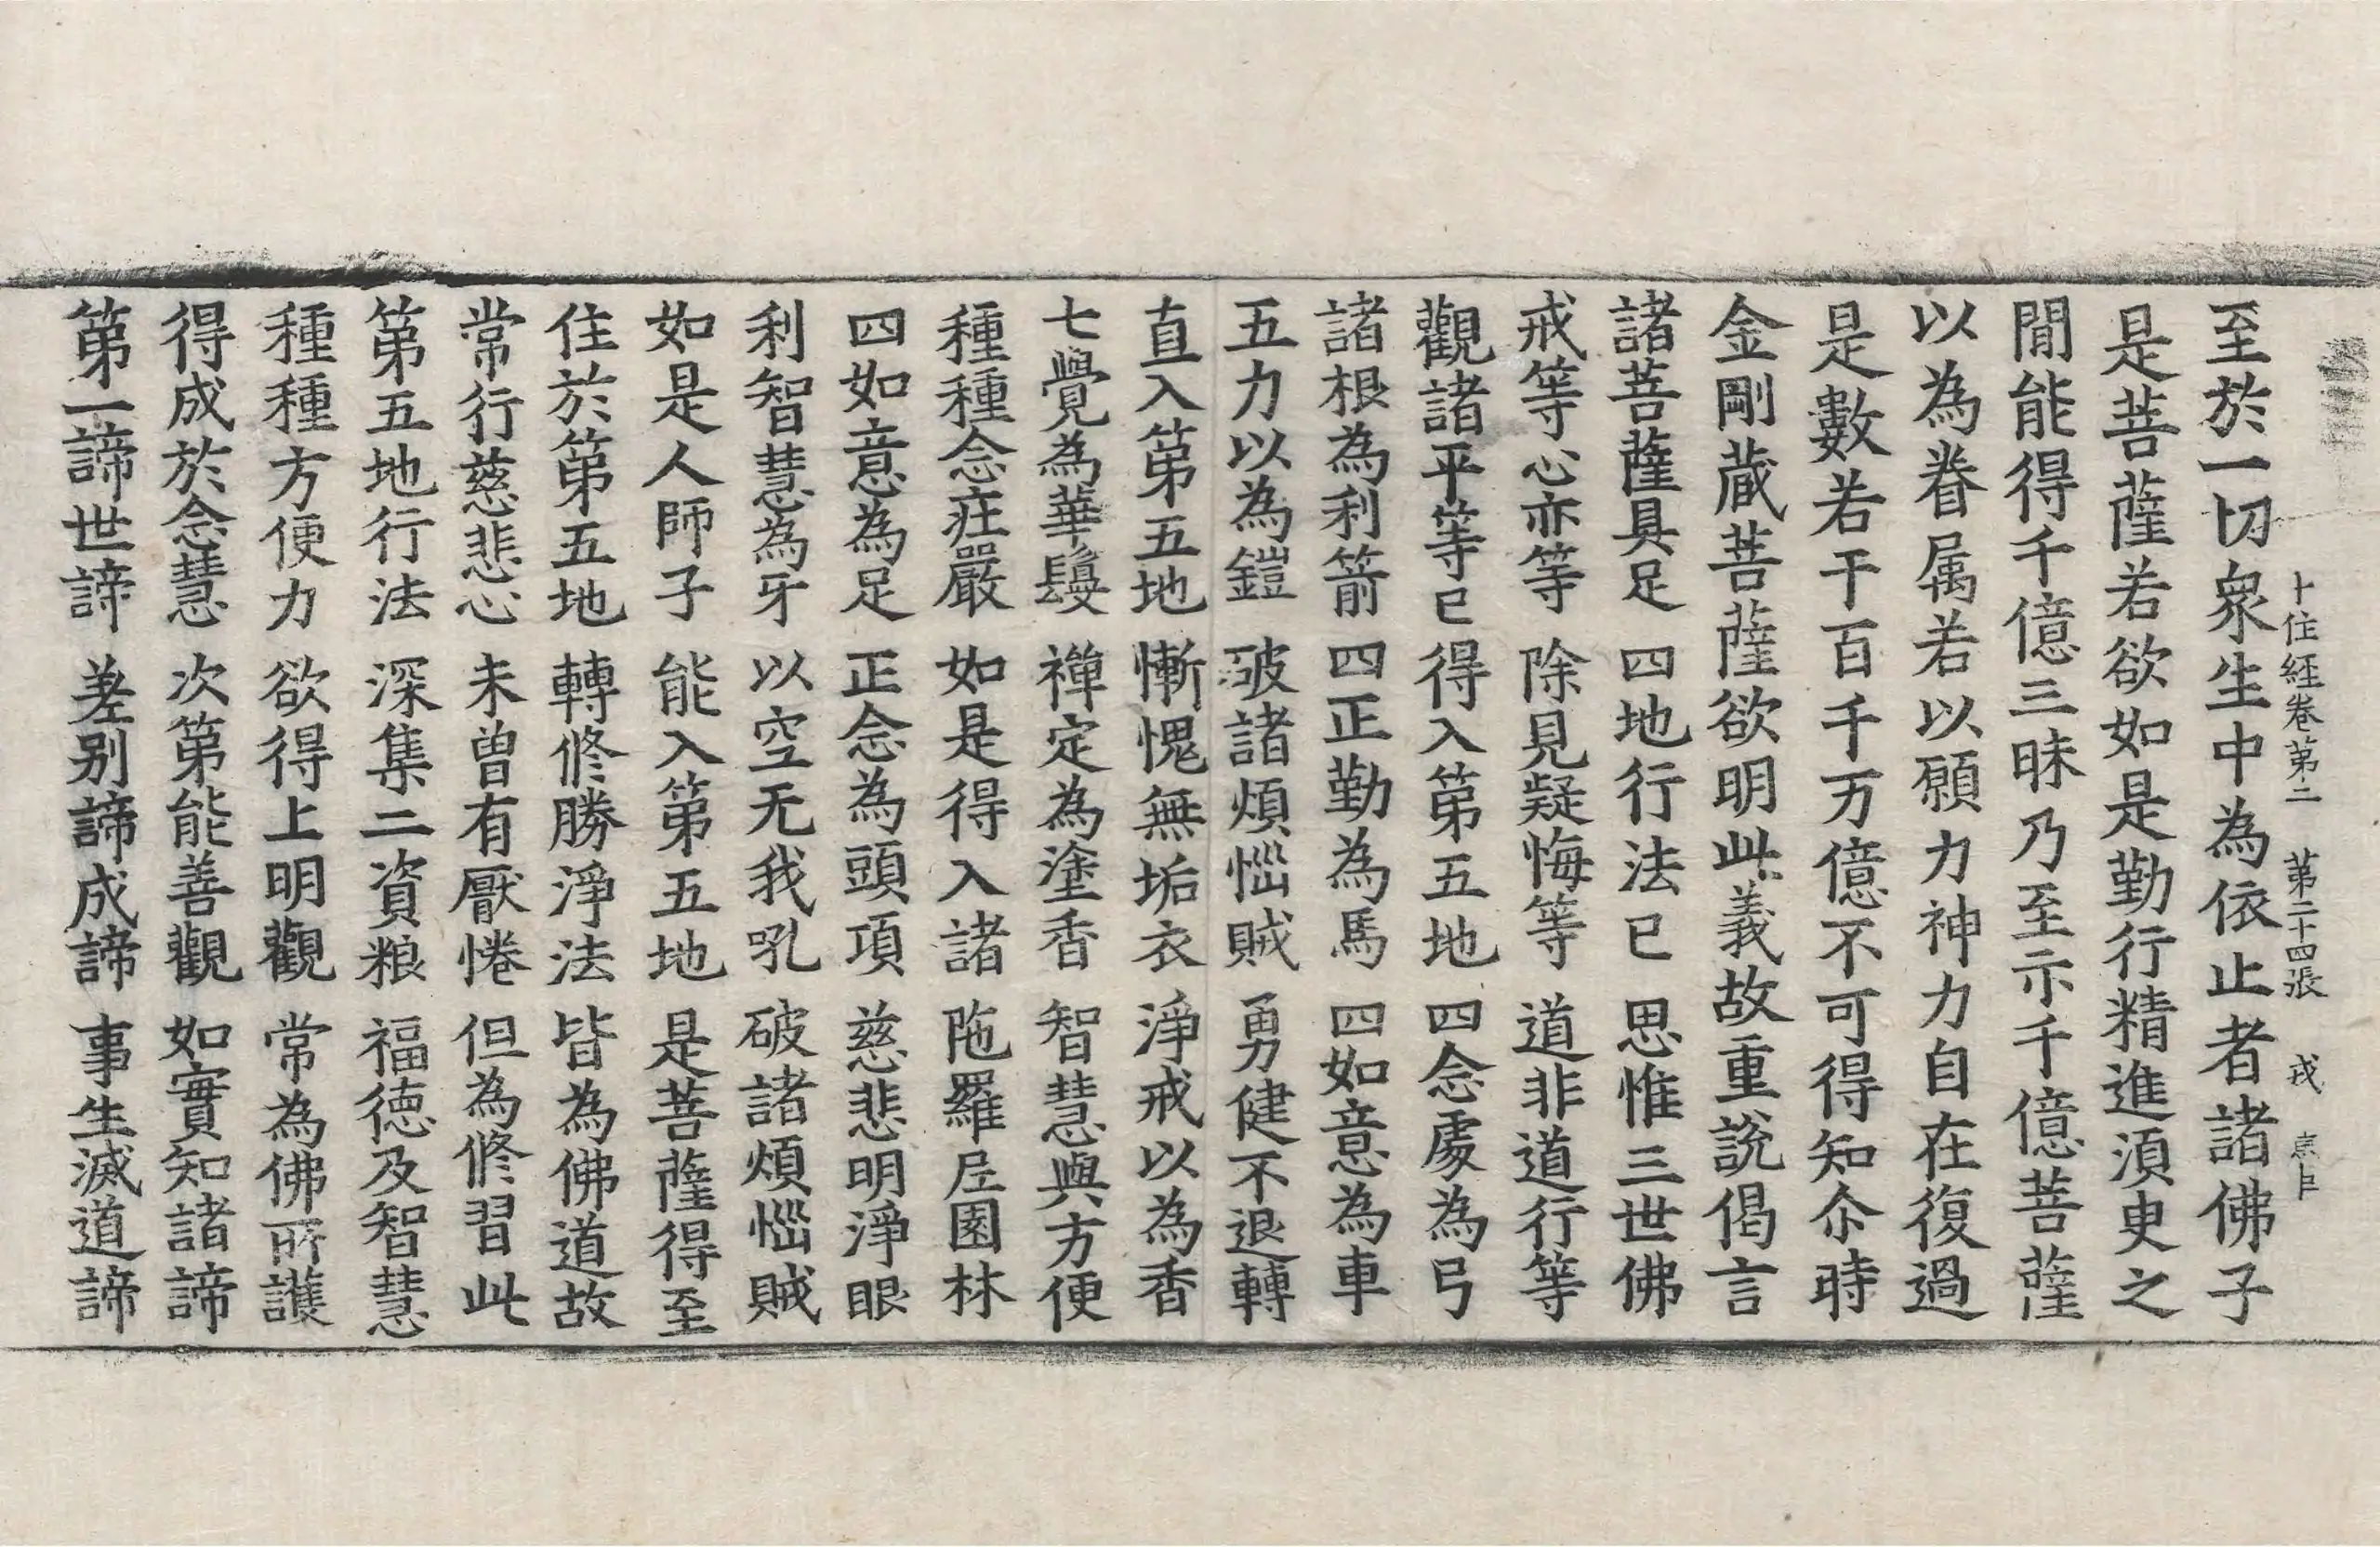 十住經卷第二　第二十四張　戎
至於一切衆生中為依止者諸佛子
是菩薩若欲如是勤行精進湏臾之
閒能得千億三昧乃至示千億菩薩
以為眷属若以願力神力自在復過
是數若干百千万億不可得知尒時
金剛藏菩薩欲明此義故重說偈言
諸菩薩具足　四地行法已　思惟三世佛
戒等心亦等　除見疑悔等　道非道行等
觀諸平等已　得入第五地　四念處為弓
諸根為利箭　四正勤為馬　四如意為車
五力以為鎧　破諸煩惱賊　勇健不退轉
直入第五地　慚愧無垢衣　淨戒以為香
七覺為華鬘　禪定為塗香　智慧與方便
種種念庄嚴　如是得入諸　陁羅尼園林
四如意為足　正念為頭項　慈悲明淨眼
利智慧為牙　以空无我吼　破諸煩惱賊
如是人師子　能入第五地　是菩薩得至
住於第五地　轉修勝淨法　皆為佛道故
常行慈悲心　未曾有厭惓　但為修習此
第五地行法　深集二資粮　福德及智慧
種種方便力　欲得上明觀　常為佛所護
得成於念慧　次第能善觀　如實知諸諦
第一諦世諦　差别諦成諦　事生滅道諦